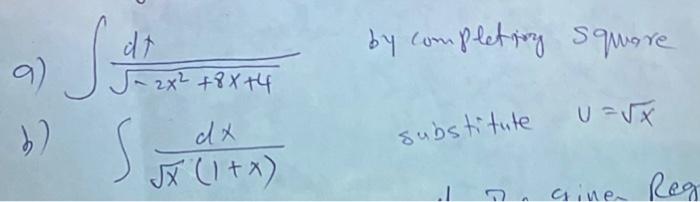 a) ∫ dx / √(-2x² + 8x + 4) by completing square
b) ∫ dx / (√x (1 + x)) substitute U = √x
given Reg